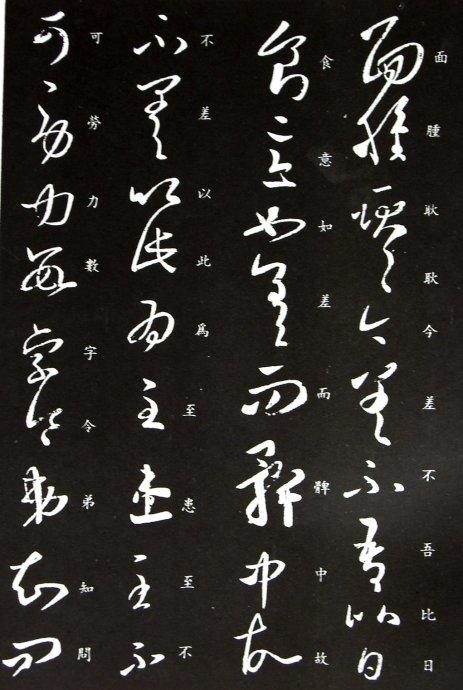 面腫耿耿今差不吾比日
食意如差而髀中故
不差以此爲至患至不
可勞力數字令弟知問